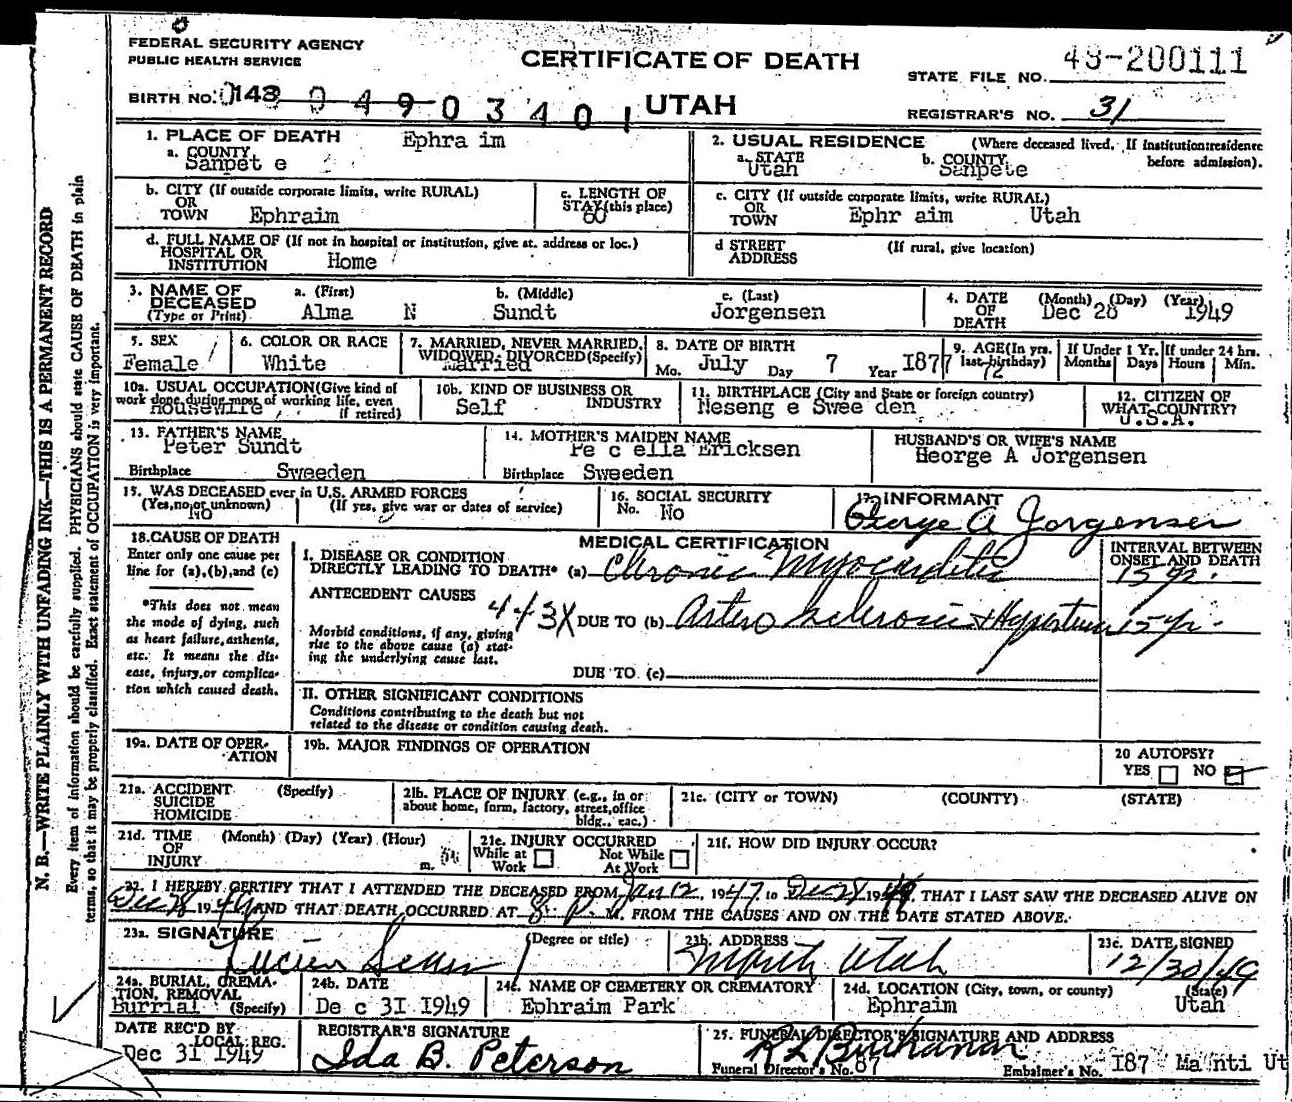 FEDERAL SECURITY AGENCY
PUBLIC HEALTH SERVICE
CERTIFICATE OF DEATH
STATE FILE NO. 49-200111
BIRTH NO. 0143 0 4 9 0 3 4 0 1
UTAH
REGISTRAR'S NO. 31
1. PLACE OF DEATH Ephra im
a. COUNTY
Sanpet e
2. USUAL RESIDENCE (Where deceased lived. If institution:residence before admission).
a. STATE b. COUNTY
Utah Sanpete
b. CITY (If outside corporate limits, write RURAL)
OR
TOWN Ephraim
c. LENGTH OF
STAY(this place)
60
c. CITY (If outside corporate limits, write RURAL)
OR
TOWN Ephr aim Utah
d. FULL NAME OF (If not in hospital or institution, give st. address or loc.)
HOSPITAL OR
INSTITUTION Home
d STREET (If rural, give location)
ADDRESS
3. NAME OF
DECEASED
(Type or Print)
a. (First) b. (Middle) c. (Last)
Alma N Sundt Jorgensen
4. DATE
OF
DEATH
(Month) (Day) (Year)
Dec 28 1949
5. SEX
Female
6. COLOR OR RACE
White
7. MARRIED, NEVER MARRIED,
WIDOWED, DIVORCED(Specify)
Married
8. DATE OF BIRTH
Mo. July Day 7 Year I877
9. AGE(In yrs.
last birthday)
72
If Under 1 Yr.
Months Days
If under 24 hrs.
Hours Min.
10a. USUAL OCCUPATION(Give kind of
work done during most of working life, even
if retired)
Housewife
10b. KIND OF BUSINESS OR
INDUSTRY
Self
11. BIRTHPLACE (City and State or foreign country)
Neseng e Swee den
12. CITIZEN OF
WHAT COUNTRY?
U.S.A.
13. FATHER'S NAME
Peter Sundt
Birthplace Sweeden
14. MOTHER'S MAIDEN NAME
Pe c ella Ericksen
Birthplace Sweeden
HUSBAND'S OR WIFE'S NAME
Heorge A Jorgensen
15. WAS DECEASED ever in U.S. ARMED FORCES
(Yes,no,or unknown) (If yes, give war or dates of service)
NO
16. SOCIAL SECURITY
No. No
17. INFORMANT
George A Jorgensen
18.CAUSE OF DEATH
Enter only one cause per
line for (a),(b),and (c)
*This does not mean
the mode of dying, such
as heart failure, asthenia,
etc. It means the dis-
ease, injury, or complica-
tion which caused death.
MEDICAL CERTIFICATION
INTERVAL BETWEEN
ONSET AND DEATH
I. DISEASE OR CONDITION
DIRECTLY LEADING TO DEATH* (a) Chronic Myocarditis 15 yr.
ANTECEDENT CAUSES
443X DUE TO (b) Arterio sclerosis + Hypertension 15 yr.
Morbid conditions, if any, giving
rise to the above cause (a) stat-
ing the underlying cause last.
DUE TO (c)
II. OTHER SIGNIFICANT CONDITIONS
Conditions contributing to the death but not
related to the disease or condition causing death.
19a. DATE OF OPER-
ATION
19b. MAJOR FINDINGS OF OPERATION
20 AUTOPSY?
YES NO
21a. ACCIDENT (Specify)
SUICIDE
HOMICIDE
21b. PLACE OF INJURY (e.g., in or
about home, form, factory, street,office
bldg., eac.)
21c. (CITY or TOWN) (COUNTY) (STATE)
21d. TIME (Month) (Day) (Year) (Hour)
OF
INJURY m.
21e. INJURY OCCURRED
While at
Work
Not While
At Work
21f. HOW DID INJURY OCCUR?
22. I HEREBY CERTIFY THAT I ATTENDED THE DECEASED FROM Jan 12, 1947 to Dec 28 1949, THAT I LAST SAW THE DECEASED ALIVE ON
Dec 28 1949 AND THAT DEATH OCCURRED AT 8: P. M. FROM THE CAUSES AND ON THE DATE STATED ABOVE.
23a. SIGNATURE (Degree or title)
Lucien
23b. ADDRESS
Utah
23c. DATE SIGNED
12/30/49
24a. BURIAL, CREMA-
TION, REMOVAL
Burrial (Specify)
24b. DATE
De c 3I I949
24c. NAME OF CEMETERY OR CREMATORY
Ephraim Park
24d. LOCATION (City, town, or county) (State)
Ephraim Utah
DATE REC'D BY
LOCAL REG.
Dec 31 1949
REGISTRAR'S SIGNATURE
Ida B. Peterson
25. FUNERAL DIRECTOR'S SIGNATURE AND ADDRESS
R L Buchanan
Funeral Director's No. 87 Embalmer's No. I87 Ma nti Ut
N. B.—WRITE PLAINLY WITH UNFADING INK—THIS IS A PERMANENT RECORD
Every item of information should be carefully supplied. PHYSICIANS should state CAUSE OF DEATH in plain
terms, so that it may be properly classified. Exact statement of OCCUPATION is very important.